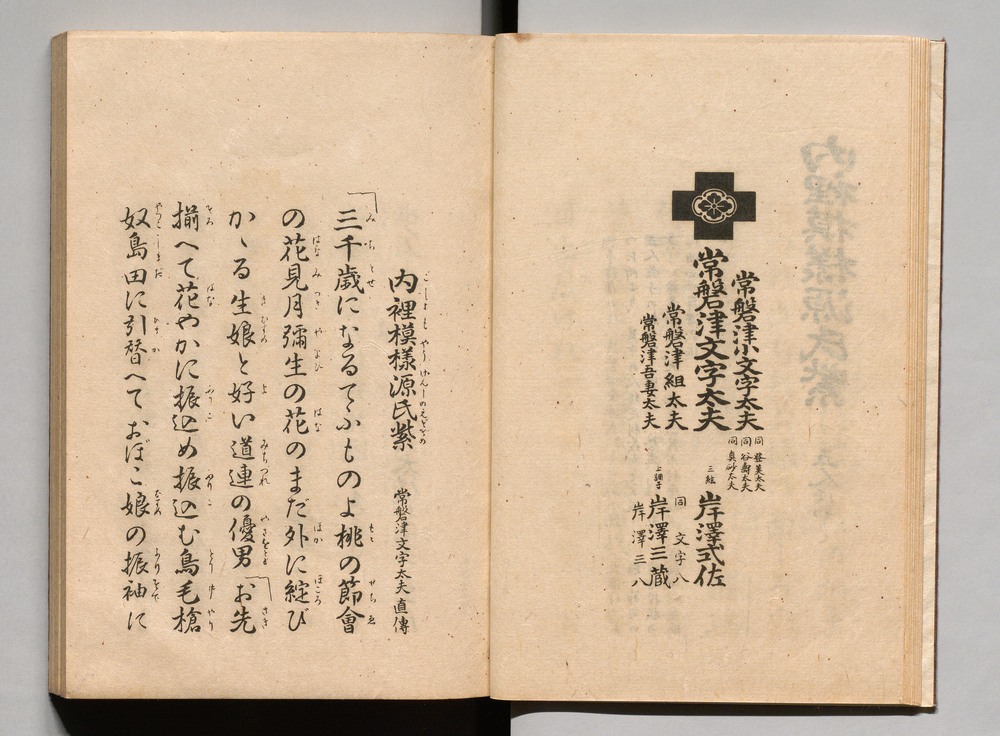 常磐津小文字太夫
常磐津文字太夫
常磐津組太夫
常磐津吾妻太夫
同 登美太夫
同 谷壽太夫
同 真砂太夫
三絃 岸澤式佐
同 文字八
上調子 岸澤三蔵
岸澤三八
内裡模様源氏紫 常磐津文字太夫 直傳
三千歳になるてふものよ桃の節會
の花見月彌生の花のまだ外に綻び
かゝる生娘と好い道連の優男「お先
揃へて花やかに振込め振込む鳥毛槍
奴島田に引替へておぼこ娘の振袖に